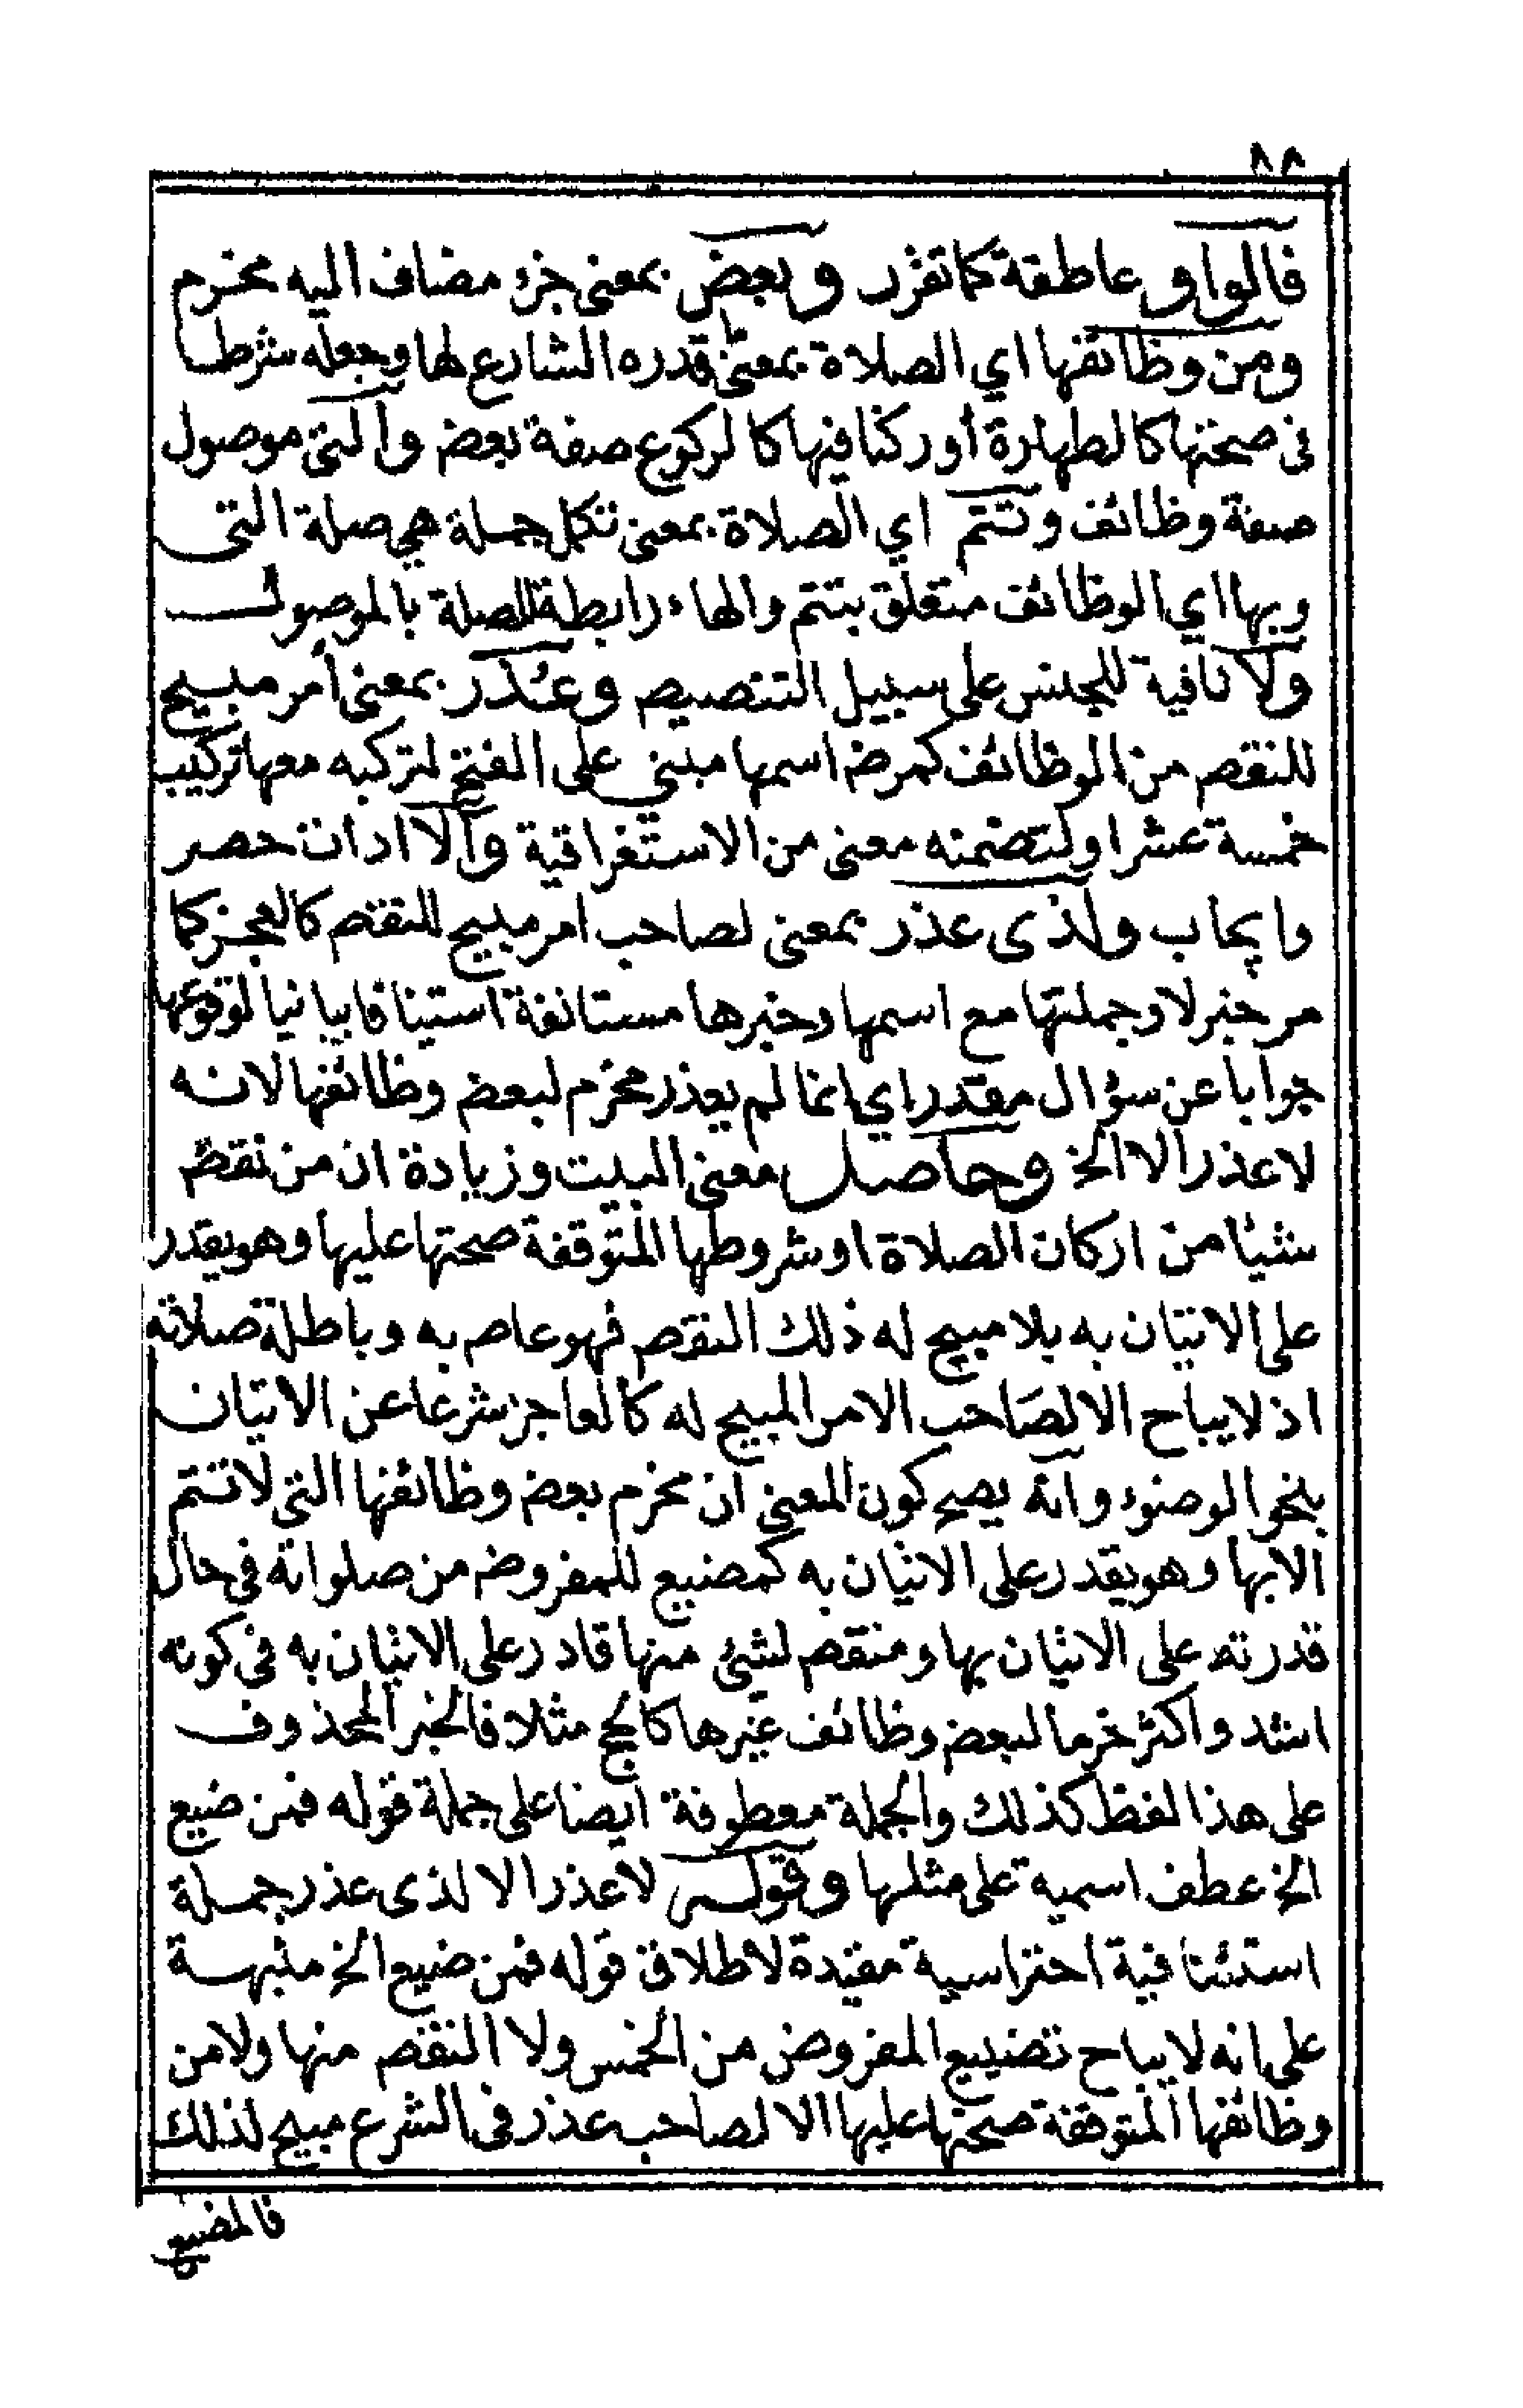 ٨٨
فالواو عاطفة كما تقرر وبعض بمعنى جزء مضاف اليه مخرم
ومن وظائفها اي الصلاة بمعنى قدره الشارع لها وجعله شرطا
في صحتها كالطهارة أو ركنا فيها كالركوع صفة بعض والتي موصول
صفة وظائف وتتم اي الصلاة بمعنى تكمل جملة هي صلة التى
وبها اي الوظائف متعلق بتتم والهاء رابطة للصلة بالموصول
ولا نافية للجنس على سبيل التنصيص وعذر بمعنى أمر مبيح
للنقص من الوظائف كمرض اسمها مبني على الفتح لتركبه معها تركيب
خمسة عشر او لتضمنه معنى من الاستغراقية وإلا ادات حصر
وايجاب ولذى عذر بمعنى لصاحب امر مبيح للنقص كالعجز كما
مر خبر لا وجملتها مع اسمها وخبرها مستانفة استينافا بيانيا لوقوعها
جوابا عن سؤال مقدر اي انما لم يعذر مخرم لبعض وظائفها لانه
لا عذر الا الخ وحاصل معنى البيت وزيادة ان من نقص
شيئا من اركان الصلاة او شروطها المتوقفة صحتها عليها وهو يقدر
على الاتيان به بلا مبيح له ذلك النقص فهو عاص به وباطلة صلاته
اذ لا يباح الا لصاحب الامر المبيح له كالعاجز شرعا عن الاتيان
بنحو الوضوء وانه يصح كون المعنى ان مخرم بعض وظائفها التي لا تتم
الا بها وهو يقدر على الاتيان به كمضيع للمفروض من صلواته في حال
قدرته على الاتيان بها ومنقص لشيئ منها قادر على الاتيان به في كونه
اشد واكثر خرما لبعض وظائف غيرها كالحج مثلا فالخبر المحذوف
على هذا لفظ كذلك والجملة معطوفة ايضا على جملة قوله فمن ضيع
الخ عطف اسمية على مثلها وقوله لا عذر الا لذى عذر جملة
استئنافية احتراسية مقيدة لاطلاق قوله فمن ضيع الخ منبهة
على انه لا يباح تضييع المفروض من الخمس ولا النقص منها ولا من
وظائفها المتوقفة صحتها عليها الا لصاحب عذر في الشرع مبيح لذلك
فالمضيع